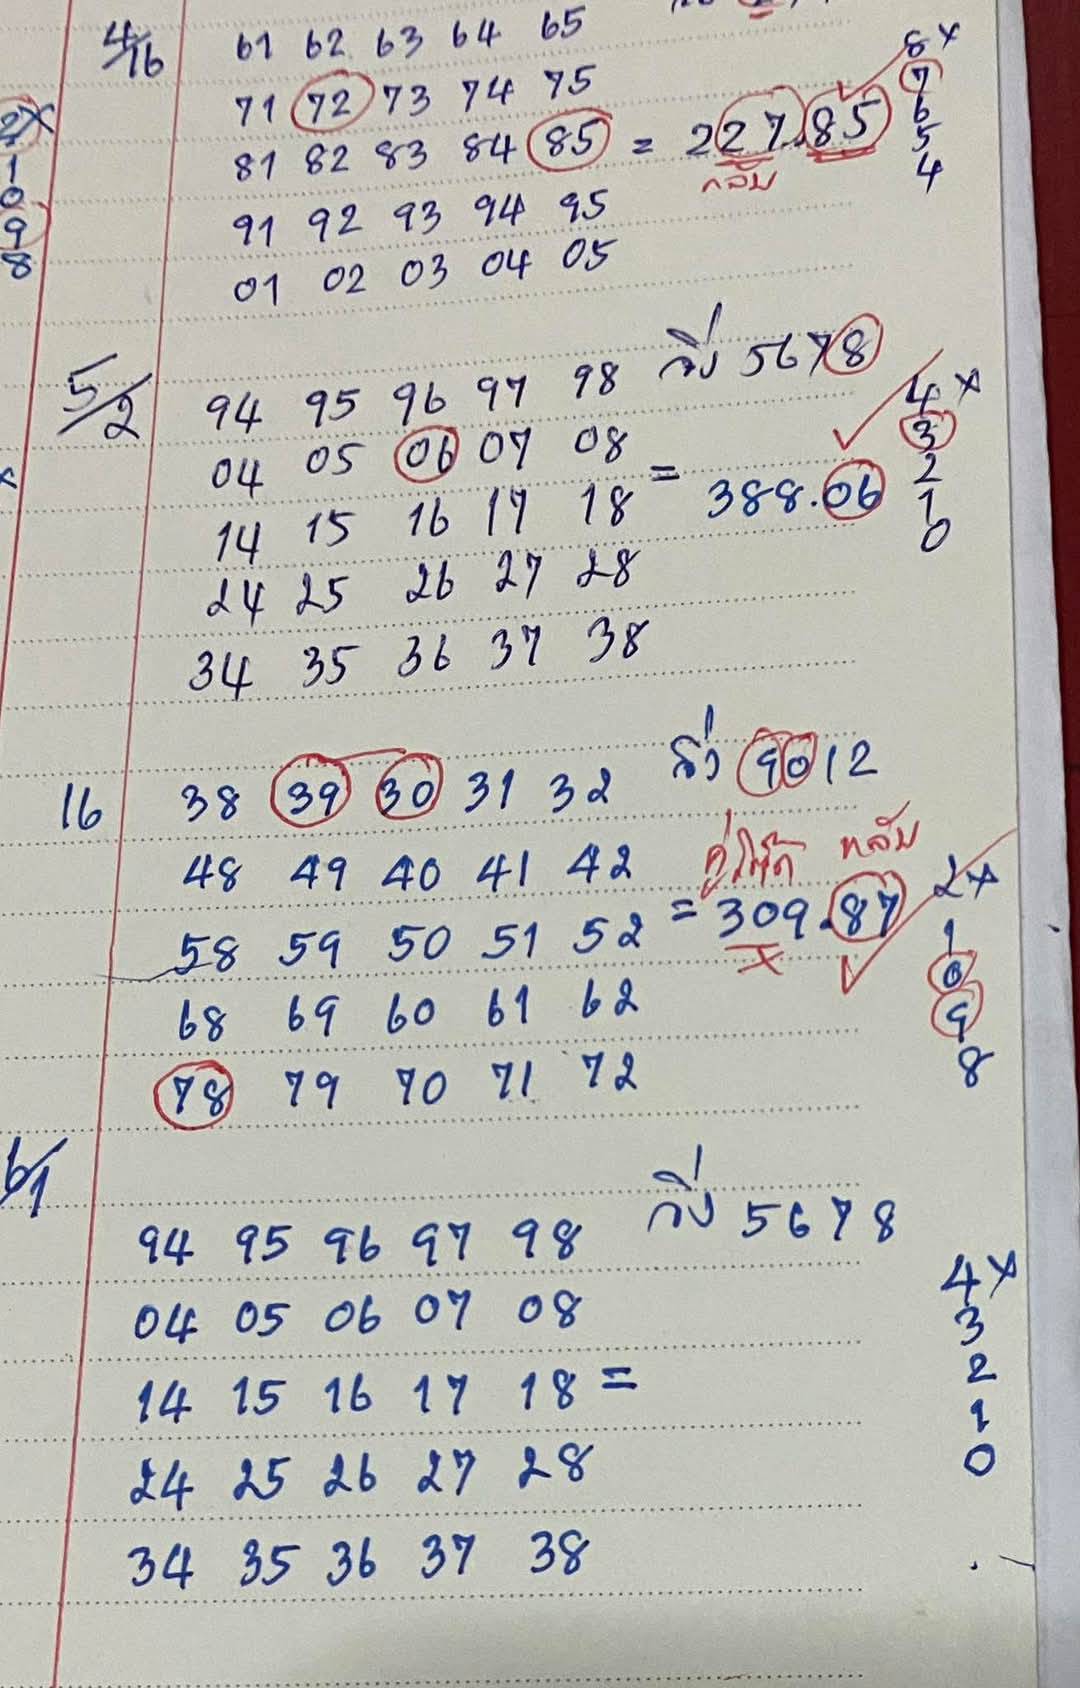 4/16 61 62 63 64 65
71 72 73 74 75
81 82 83 84 85 = 227.85
กลับ
91 92 93 94 95
01 02 03 04 05
8x
7
6
5
4
2x
1
0
9
8
5/2 94 95 96 97 98 วิ่ง 5678
04 05 06 07 08
= 388.06
14 15 16 17 18
24 25 26 27 28
34 35 36 37 38
4x
3
2
1
0
x
16 38 39 30 31 32 วิ่ง 9012
48 49 40 41 42 คู่โต๊ด กลับ
58 59 50 51 52 = 309.87
x
68 69 60 61 62
78 79 70 71 72
2x
1
0
9
8
6/1
94 95 96 97 98 วิ่ง 5678
04 05 06 07 08
14 15 16 17 18 =
24 25 26 27 28
34 35 36 37 38
4x
3
2
1
0